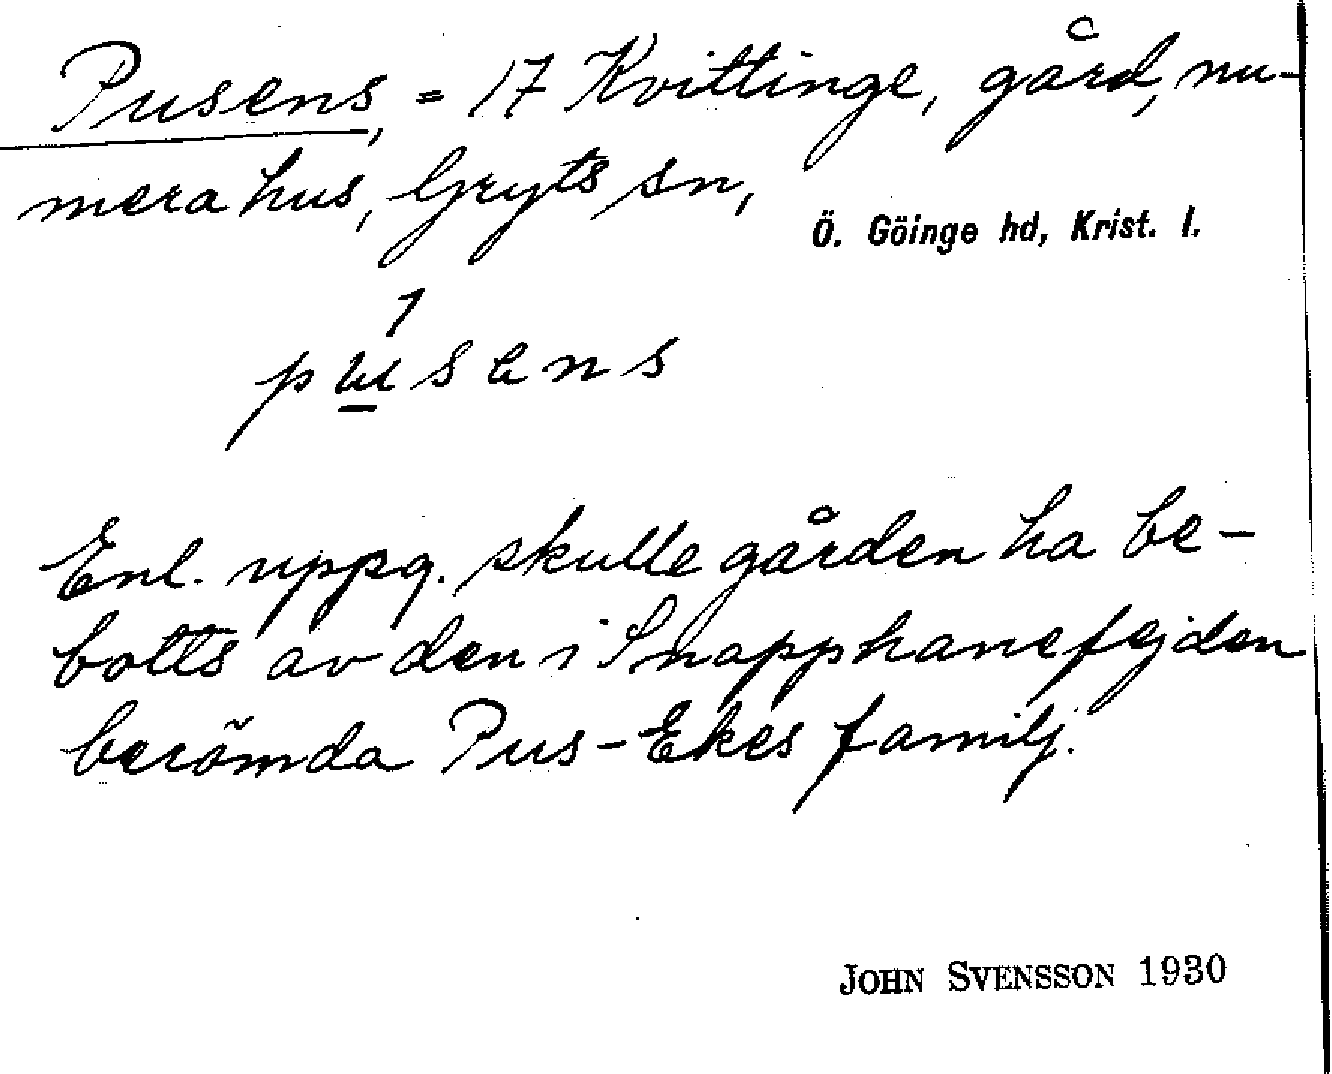 Pusens, = 17 Kvittinge, gård, nu-
mera hus, Gryts sn,
Ö. Göinge hd, Krist. l.
pusens
Enl. uppg. skulle gården ha be-
botts av den i Snapphanefejden
berömda Pus-Ekes familj.
JOHN SVENSSON 1930